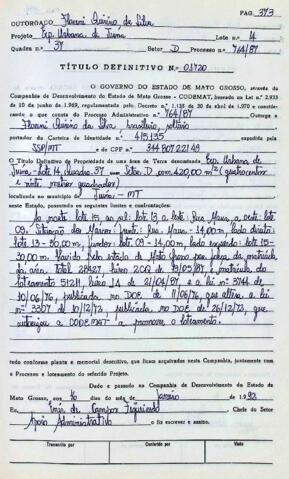 PAG. 373
OUTORGADO Floreni Quirino da Silva
Projeto Exp. Urbana de Juina Lote n.º 14
Quadra n.º 37 Setor D Processo n.º 764/87
TÍTULO DEFINITIVO N.º 01720
O GOVERNO DO ESTADO DE MATO GROSSO, através da
Companhia de Desenvolvimento do Estado de Mato Grosso - CODEMAT, baseado na Lei n.º 2.933
de 10 de junho de 1.969, regulamentada pelo Decreto n.º 1.138 de 30 de abril de 1.970 e considerando
o que consta do Processo Administrativo n.º 764/87 Outorga a
Floreni Quirino da Silva, brasileiro, solteiro
portador da Carteira de Identidade n.º 415.135 expedida pela
SSP/MT e do CPF n.º 344 807 221 49
O Título Definitivo de Propriedade de uma área de Terra denominada Exp. Urbana de
Juina - Lote 14 Quadra 37 Setor D com 420,00 m² (quatrocentos
e vinte metros quadrados)
localizado no município de Juina - MT
neste Estado, possuindo os seguintes limites e confrontações:
Ao norte: lote 15, ao sul: lote 13, a leste: Rua, a oeste: lote
09. Situação dos Marcos: frente: Rua - 14,00 m, lado direito:
lote 13 - 30,00 m, fundos: lote 09 - 14,00 m, lado esquerdo: lote 15 -
30,00 m. Havido pelo Estado de Mato Grosso por força da matrícula
da área total 28427, livro 2CQ de 19/05/87 e matrícula do
loteamento 51211, livro de 21/04/87 e a lei nº 3744 de
10/06/76, publicada no DOE de 11/06/76, que altera a lei
nº 3307 de 10/12/73, publicada no DOE de 26/12/73, que
autorizou a CODEMAT a promover o loteamento.
tudo conforme planta e memorial descritivo, que ficam arquivados nesta Companhia, juntamente com
o Processo e loteamento do referido Projeto.
Dado e passado na Companhia de Desenvolvimento do Estado de
Mato Grosso, aos 16 dias do mês de janeiro de 1.992
Eu, de Campos Figueiredo Chefe do Setor
Apoio Administrativo o fiz escrever e assino.
Transcrito por Conferido por Visto